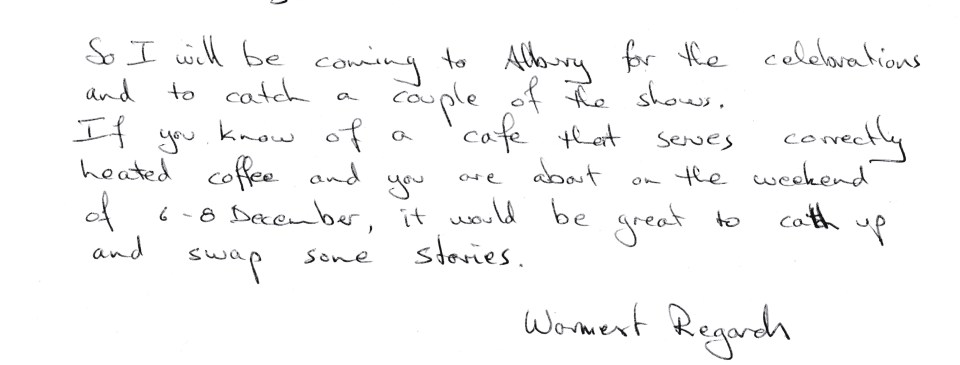 So I will be coming to Albury for the celebrations
and to catch a couple of the shows.
If you know of a cafe that serves correctly
heated coffee and you are about on the weekend
of 6-8 December, it would be great to catch up
and swap some stories.
Warmest Regards